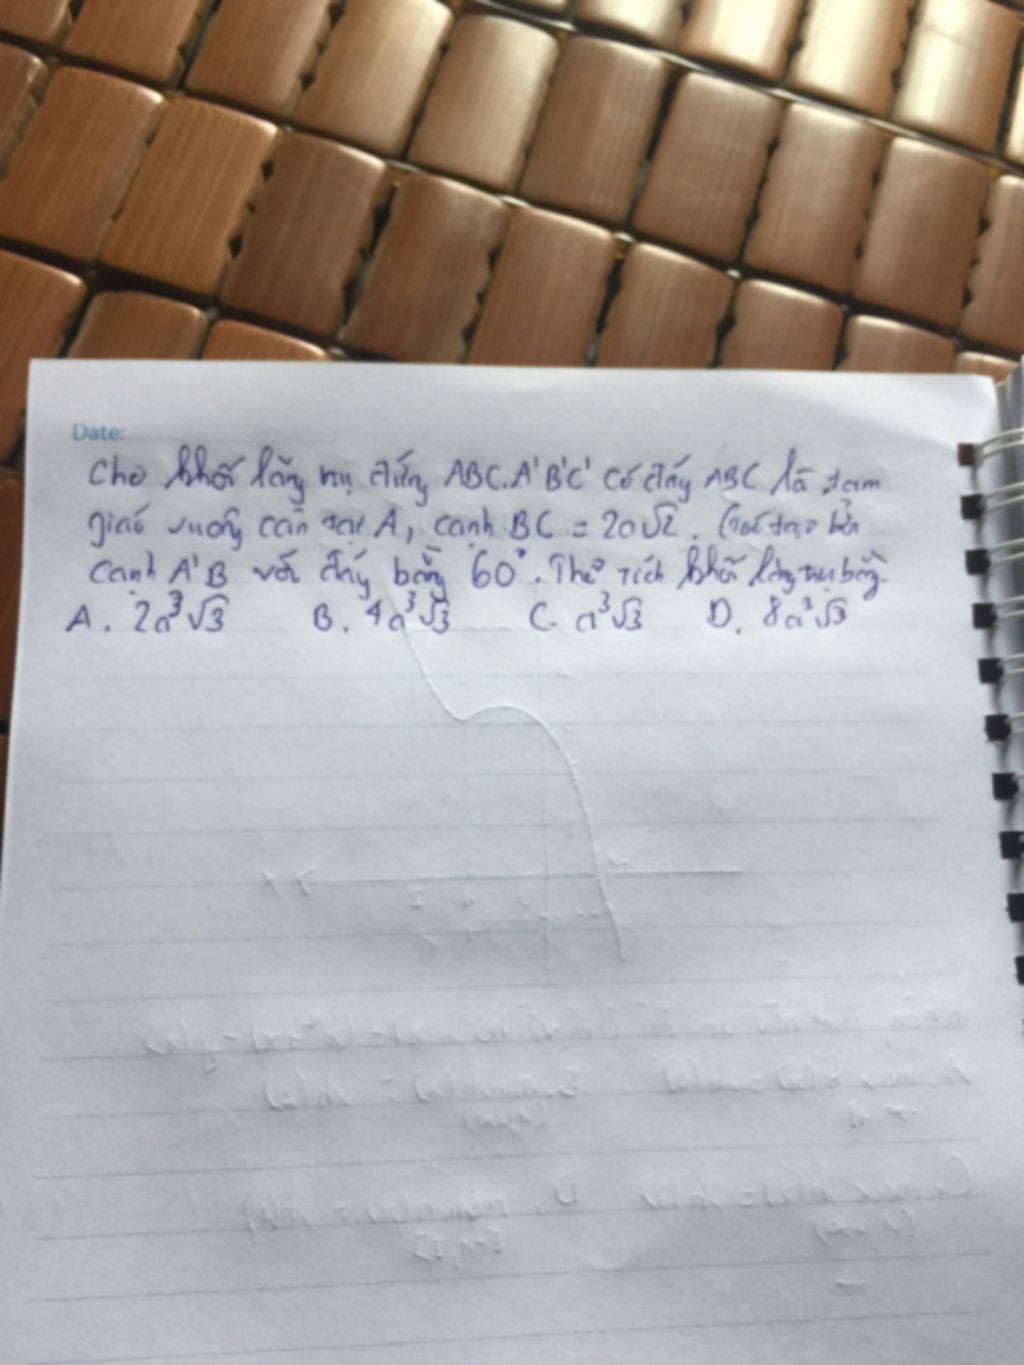 Date:
Cho khối lăng trụ đứng ABC.A'B'C' có đáy ABC là tam
giác vuông cân tại A, cạnh BC = 2a√2. Góc tạo bởi
cạnh A'B với đáy bằng 60°. Thể tích khối lăng trụ bằng
A. 2a³√3 B. 4a³√3 C. a³√3 D. 8a³√3